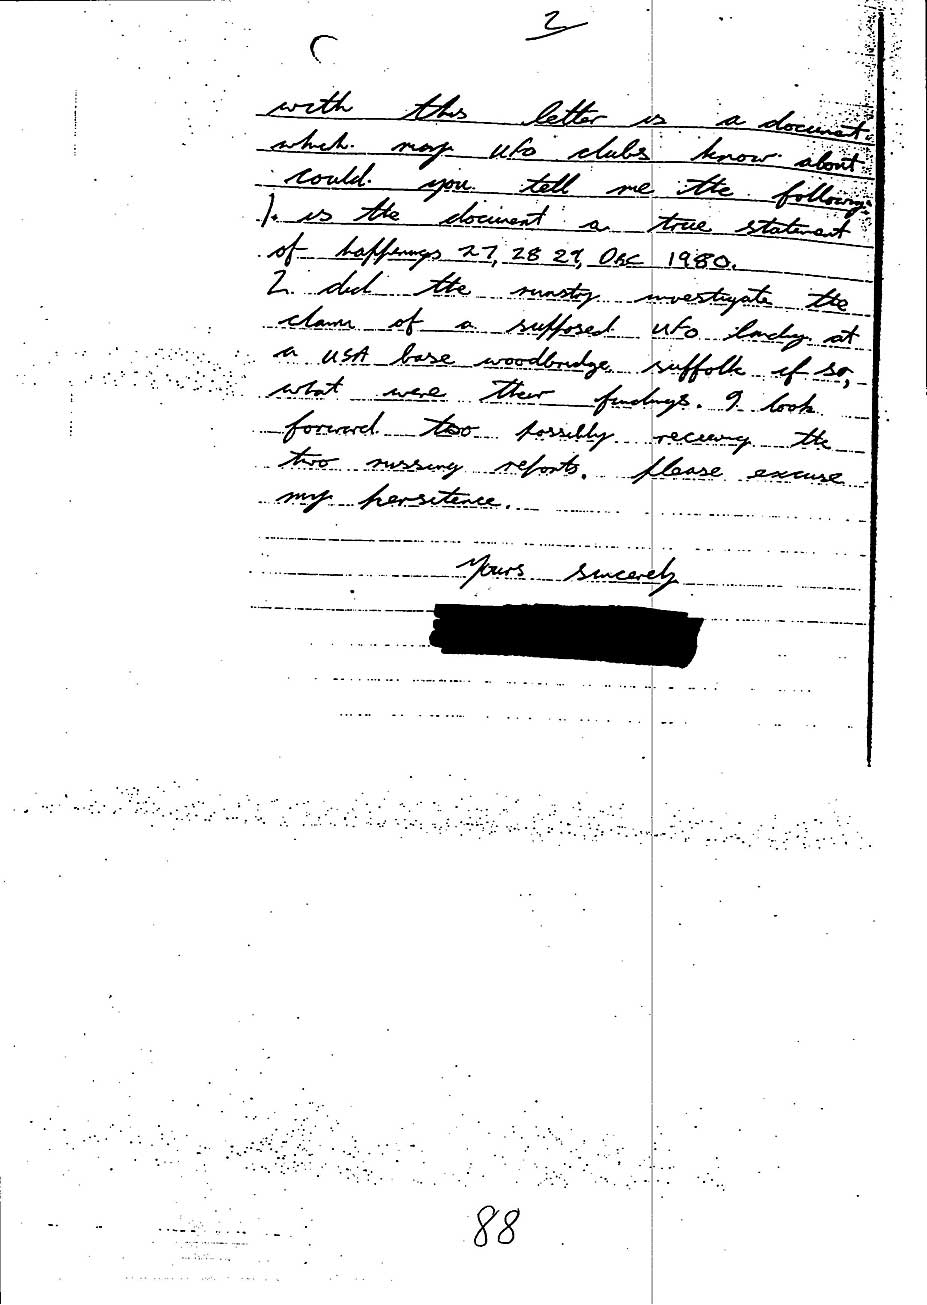 2
with this letter is a document
which many UFO clubs know about
could you tell me the following:
1. is the document a true statement
of happenings 27, 28 29, DEC 1980.
2 did the minstry investigate the
claim of a supposed UFO landing at
a USA base woodbridge suffolk if so,
what were their findings. I look
forward too possibly receiving the
two missing reports. please excuse
my persitence.
Yours sincerely
88